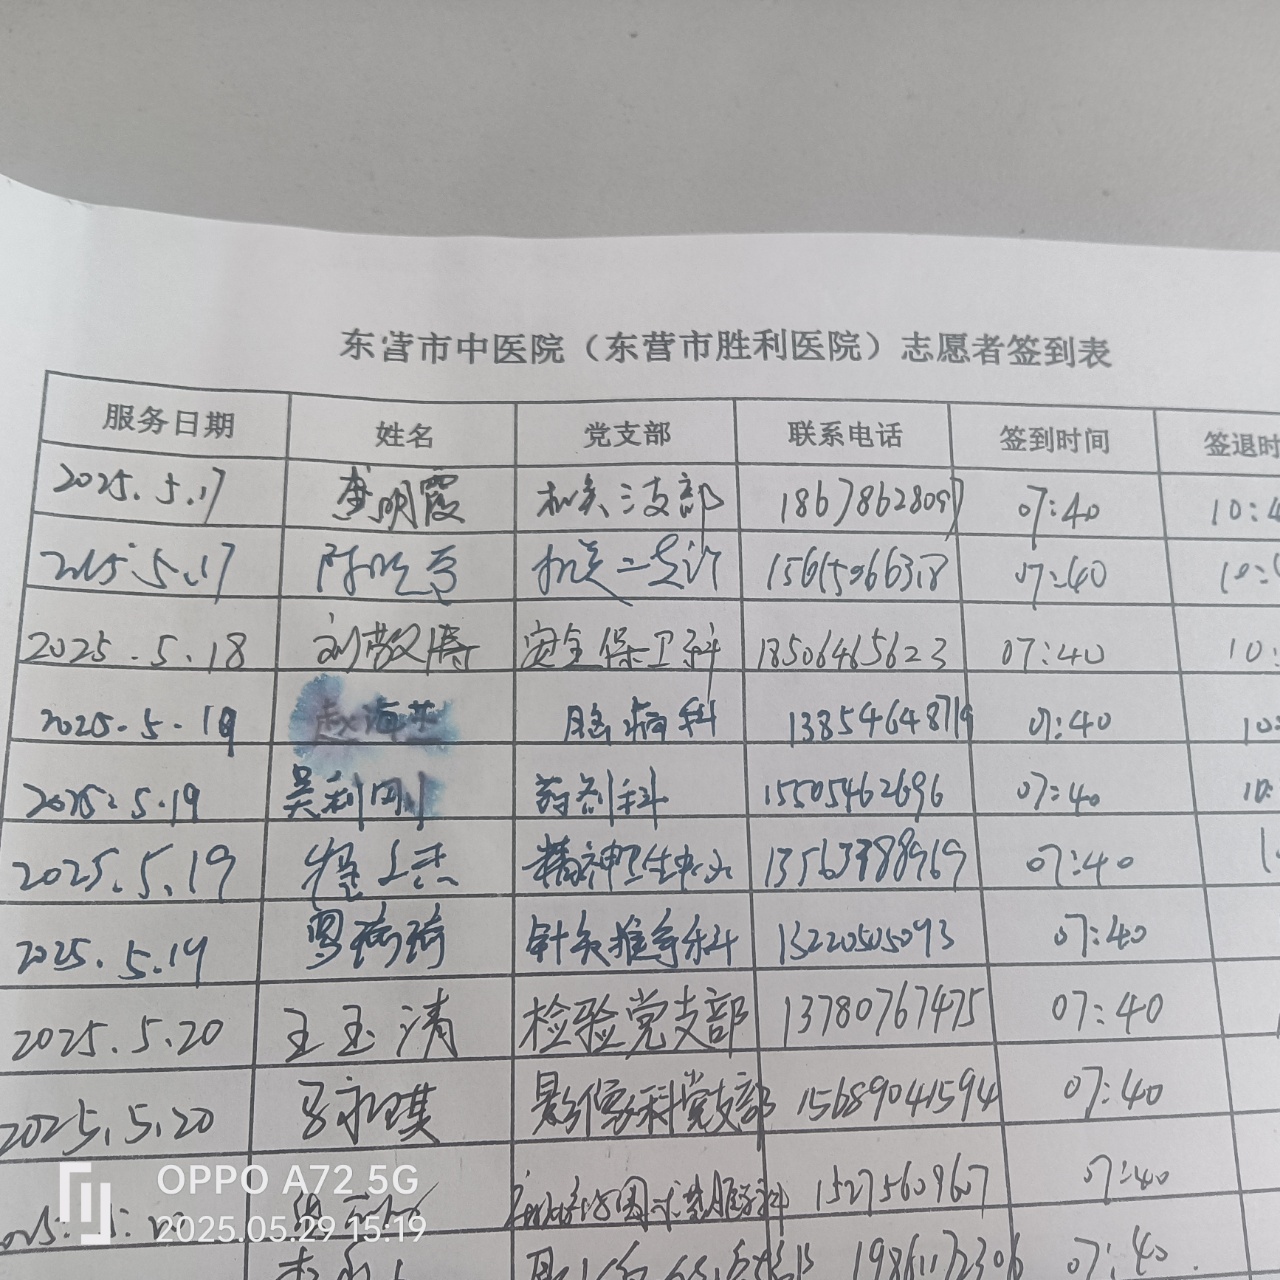 东营市中医院（东营市胜利医院）志愿者签到表
服务日期 姓名 党支部 联系电话 签到时间 签退时
2025.5.17 李明霞 机关三支部 18678628097 07:40 10:4
2025.5.17 机关二支部 07:40 10:
2025.5.18 刘敬涛 安全保卫科 18506465623 07:40 10:
2025.5.19 赵海燕 脑病科 13854648719 07:40 10:
2025.5.19 吴利刚 药剂科 15505462696 07:40 10:
2025.5.19 精神卫生中心 13563388969 07:40 1
2025.5.19 罗琦琦 针灸推拿科 13220505093 07:40
2025.5.20 王玉清 检验党支部 13780767475 07:40 1
2025.5.20 马永琪 影像科党支部 15689041594 07:40
15275609607 07:40
07:40
OPPO A72 5G
2025.05.29 15:19